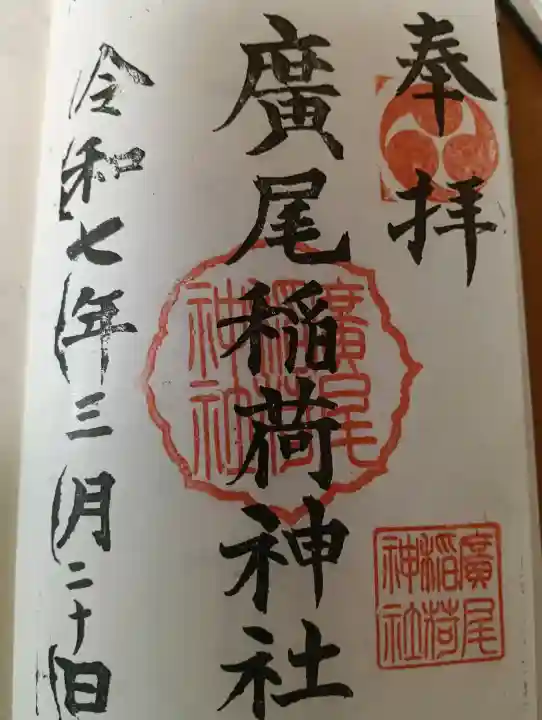 奉拝
廣尾稲荷神社
廣尾稲荷神社
廣尾稲荷神社
令和七年三月二十日